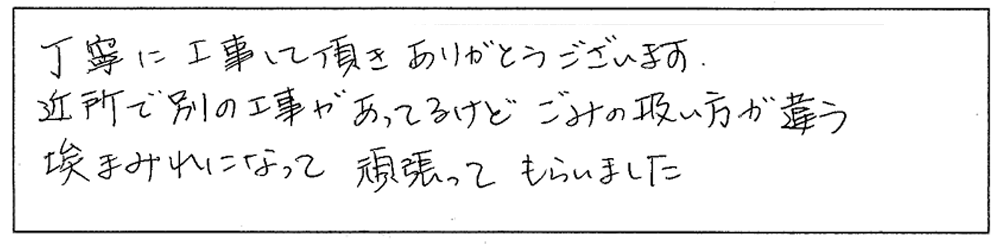 丁寧に工事して頂きありがとうございます.
近所で別の工事があってるけどごみの扱い方が違う
埃まみれになって 頑張って もらいました